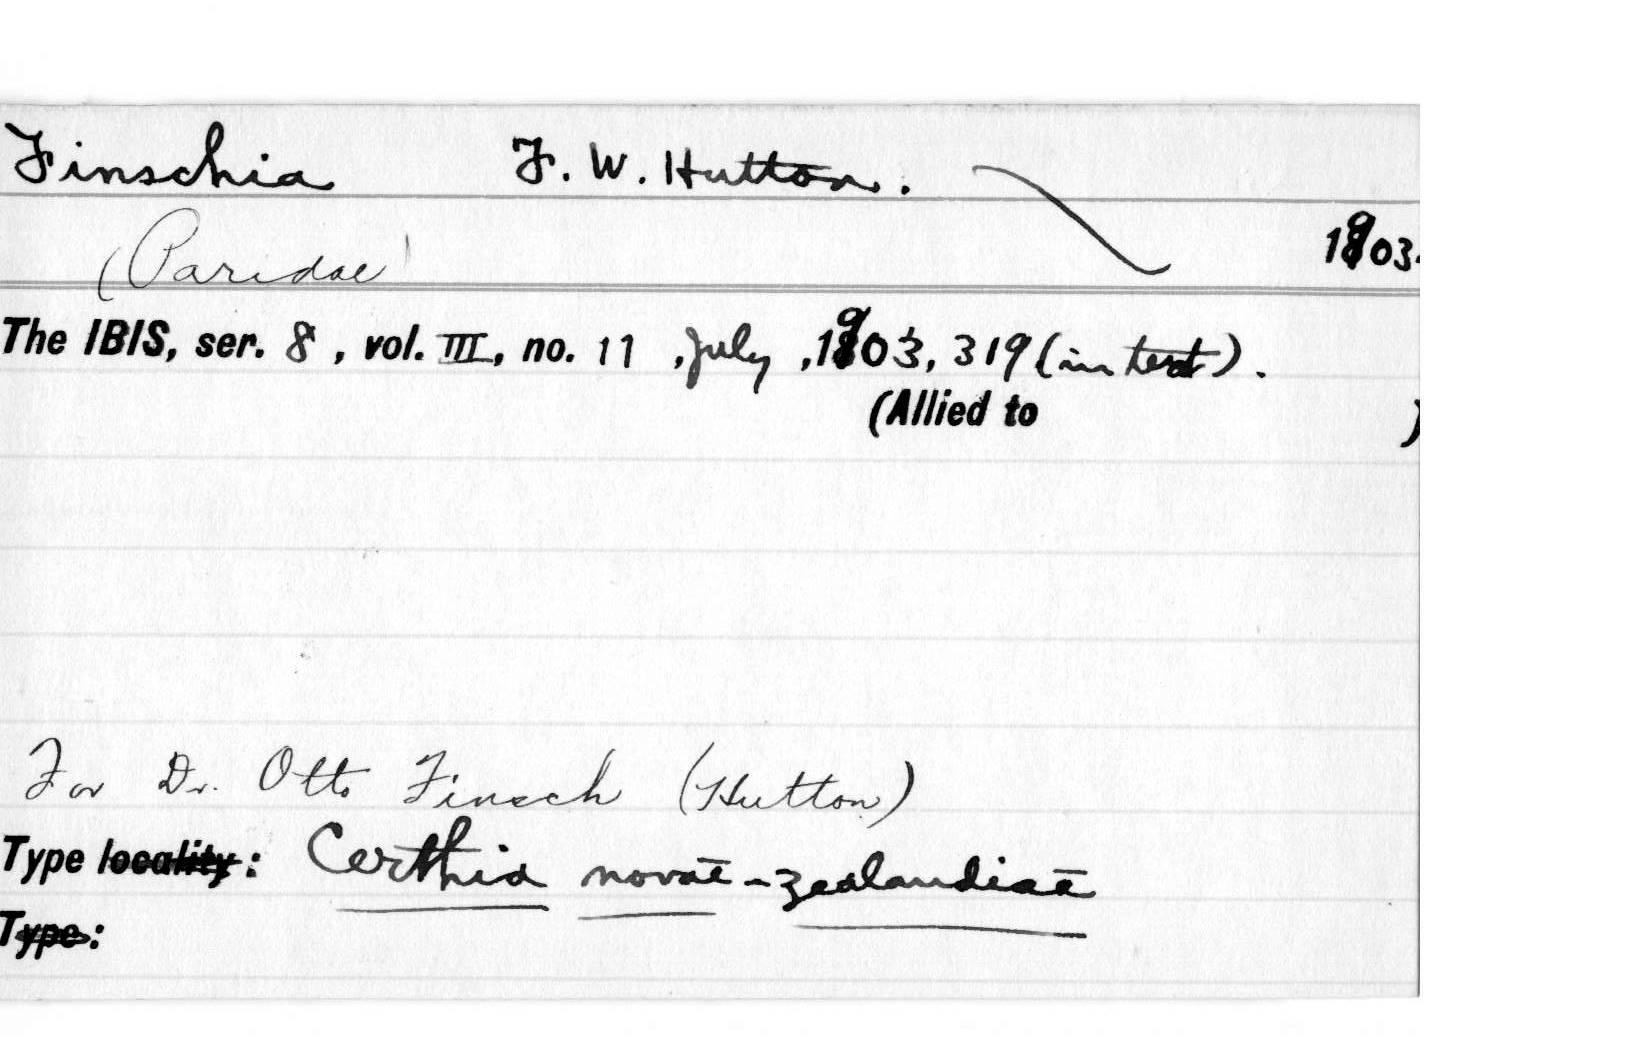 Finschia F. W. Hutton.
(Paridae) 1903.
The IBIS, ser. 8, vol. III, no. 11, July, 1903, 319 (in text).
(Allied to )
For Dr. Otto Finsch (Hutton)
Type locality: Certhia novae-zealandiae
Type: